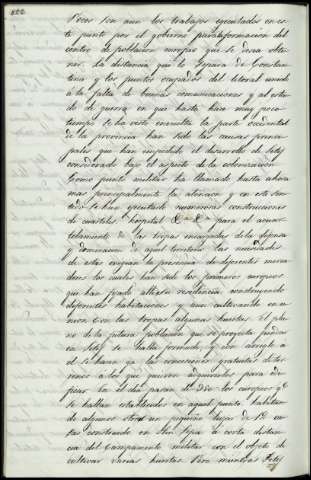 122
Pocos son aun los trabajos ejecutados en es-
te punto por el gobierno para la formacion del
centro de poblacion europea que se desea obte-
ner. La distancia que le separa de Constan-
tina y los puntos ocupados del litoral unida
à la falta de buenas comunicaciones y al esta-
do de guerra en que hasta hace muy poco
tiempo se ha visto envuelta la parte occidental
de la provincia han sido las causas princi-
pales que han impedido el desarrollo de Setif
considerado bajo el aspecto de la colonizacion.
Como punto militar ha llamado hasta ahora
mas principalmente la atencion y en este sen-
tido se han ejecutado numerosas construcciones
de cuarteles hospital &a &a para el acuar-
telamiento de las tropas encargadas de la defensa
y dominacion de aquel territorio. Las necesidades
de estas exigian la presencia de diferentes merca-
deres los cuales han sido los primeros europeos
que han fijado alli su residencia construyendo
diferentes habitaciones y aun cultivando en u-
nion con las tropas algunas huertas. El pla-
no de la futura poblacion que se proyecta fundar
en Setif se halla formado y con arreglo à
el se hacen ya las concesiones gratuitas de ter-
renos à los que quieren adquirirlos para edi-
ficar. En el dia pasan de 300 los europeos qe
se hallan establecidos en aquel punto habitan-
do algunos otros un pequeño lugar de 12 ca-
sas construido en a corta distan-
cia del campamento militar con el objeto de
cultivar varias huertas. Pero mientras Setif